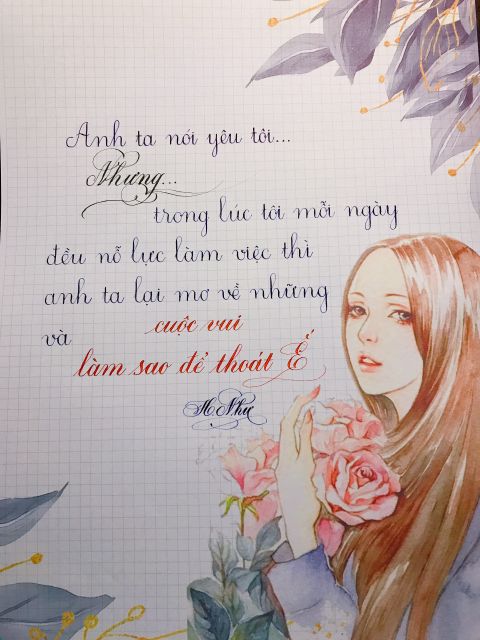 Anh ta nói yêu tôi...
Nhưng...
trong lúc tôi mỗi ngày
đều nỗ lực làm việc thì
anh ta lại mơ về những
và cuộc vui
làm sao để thoát Ế
H.Như